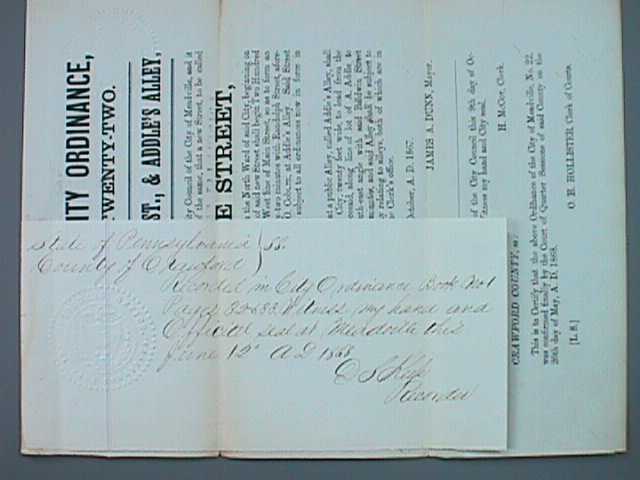 State of Pennsylvania } SS.
County of Crawford
Recorded in City Ordinance Book No 1
Pages 32 & 33. Witness my hand and
Official seal at Meadville this
June 12th A D 1868
Recorder
ITY ORDINANCE,
TWENTY-TWO.
ST., & ADDLE'S ALLEY,
ity Council of the City of Meadville, and it
of the same, that a new Street, to be called
E STREET,
the North Ward of said City, beginning on
of said new Street shall begin Two Hundred
West line of Main Street, so as to form an
two minutes with Randolph Street, afore-
O. Cobern, at Addle's Alley. Said Street
subject to all ordinances now in form in
at a public Alley, called Addle's Alley, shall
City, twenty feet wide, to lead from the
along line of lot of A. Addle, to
angle with said Baldwin Street
minutes, and said Alley shall be subject to
relating to alleys, both of which are in
the Clerk's office.
October, A. D. 1867.
JAMES A. DUNN, Mayor.
of the City Council this 9th day of Oc-
Witness my hand and City seal.
H. McCoy, Clerk.
CRAWFORD COUNTY, ss:
This is to Certify that the above Ordinance of the City of Meadville, No. 22,
was confirmed finally by the Court of Quarter Sessions of said County on the
26th day of May, A. D. 1868.
[L. S.]
O. H. HOLLISTER, Clerk of Courts.